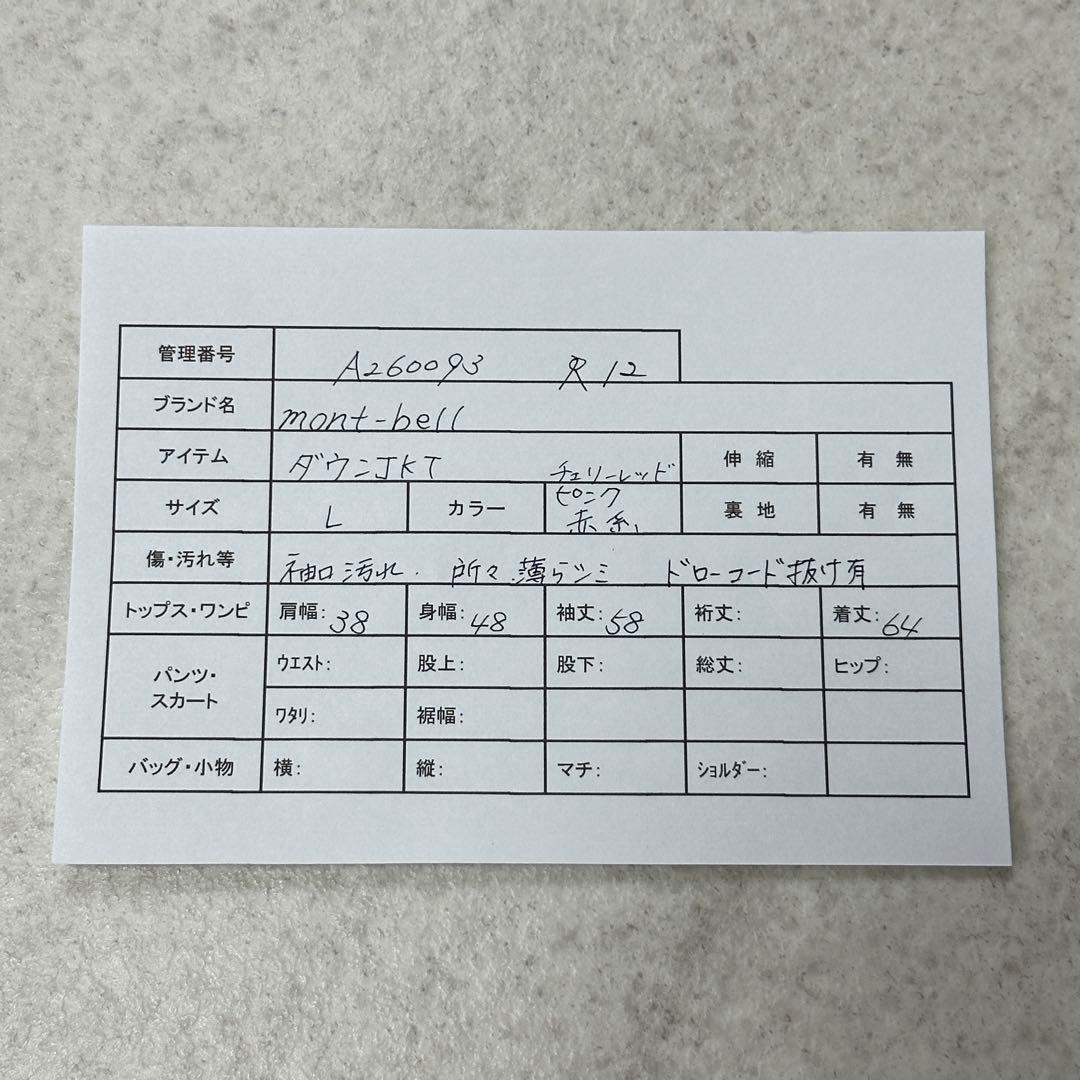 管理番号 A260093 12
ブランド名 mont-bell
アイテム ダウンJKT チェリーレッド 伸縮 有 無
サイズ L カラー ピンク 赤系 裏地 有 無
傷・汚れ等 袖口汚れ. 所々薄らシミ ドローコード抜け有
トップス・ワンピ 肩幅: 38 身幅: 48 袖丈: 58 裄丈: 着丈: 64
パンツ・スカート ウエスト: 股上: 股下: 総丈: ヒップ:
ワタリ: 裾幅:
バッグ・小物 横: 縦: マチ: ショルダー: